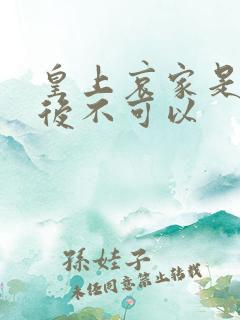 皇上哀家是
後不可以
孫娃子
未经同意禁止转载